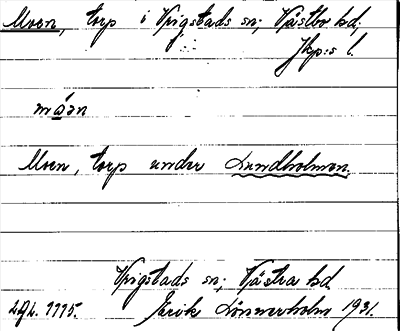 Moen, torp i Vrigstads sn; Västbo hd;
Jkp:s l.
måən
Moen, torp under Lundholmen.
Vrigstads sn; Västra hd
Erik Lönnerholm 1931.